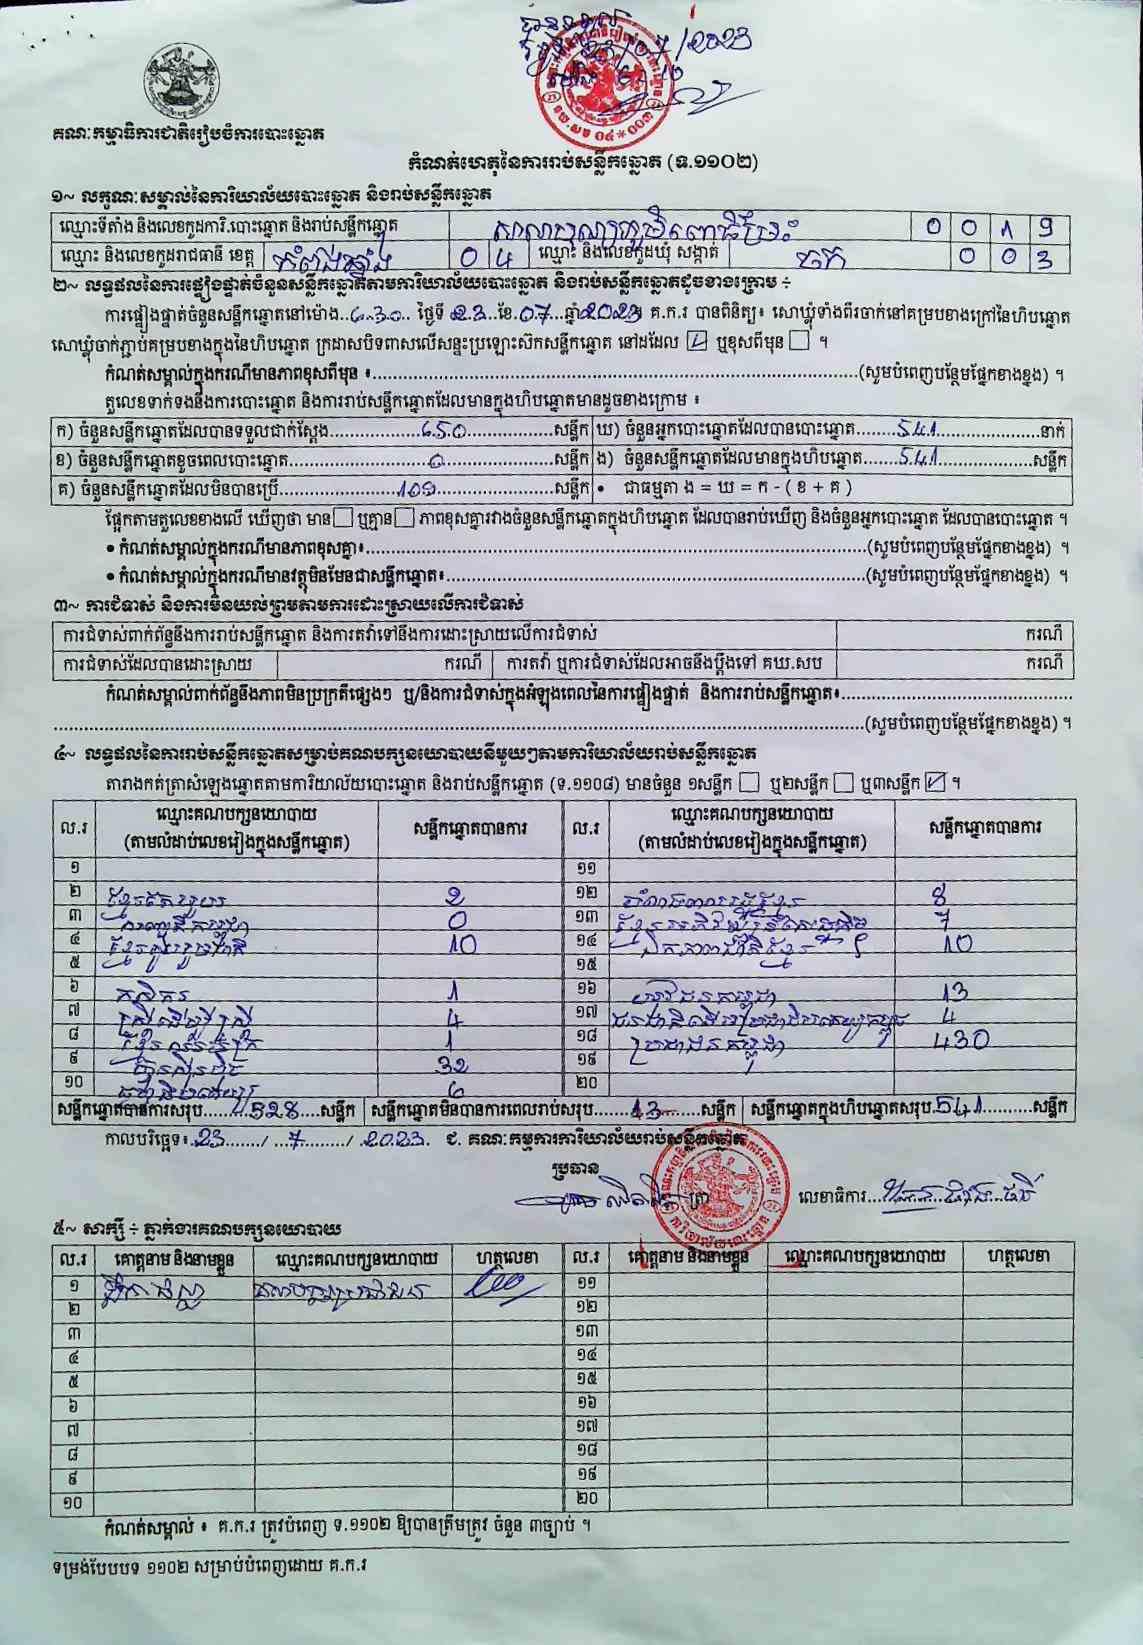 បានទទួល
ថ្ងៃ 23/07/2023
គណៈកម្មាធិការជាតិរៀបចំការបោះឆ្នោត
កំណត់ហេតុនៃការរាប់សន្លឹកឆ្នោត (ទ.១១០២)
១~ លក្ខណៈសម្គាល់នៃការិយាល័យបោះឆ្នោត និងរាប់សន្លឹកឆ្នោត
ឈ្មោះទីតាំង និងលេខកូដការិ.បោះឆ្នោត និងរាប់សន្លឹកឆ្នោត សាលាបុណ្យភូមិពោធិ៍ប្រែះ 0 0 1 9
ឈ្មោះ និងលេខកូដរាជធានី ខេត្ត កំពង់ឆ្នាំង 0 4 ឈ្មោះ និងលេខកូដឃុំ សង្កាត់ ចក 0 0 3
២~ លទ្ធផលនៃការផ្ទៀងផ្ទាត់ចំនួនសន្លឹកឆ្នោតតាមការិយាល័យបោះឆ្នោត និងរាប់សន្លឹកឆ្នោតដូចខាងក្រោម ÷
ការផ្ទៀងផ្ទាត់ចំនួនសន្លឹកឆ្នោតនៅម៉ោង..6:30.. ថ្ងៃទី 23.ខែ.07.ឆ្នាំ2023 គ.ក.រ បានពិនិត្យ៖ សោឃ្លុំទាំងពីរចាក់នៅគម្របខាងក្រៅនៃហិបឆ្នោត
សោឃ្លុំចាក់ភ្ជាប់គម្របខាងក្នុងនៃហិបឆ្នោត ក្រដាសបិទពាសលើសន្ទះប្រឡោះស៊កសន្លឹកឆ្នោត នៅដដែល ☑ ឬខុសពីមុន ☐ ។
កំណត់សម្គាល់ក្នុងករណីមានភាពខុសពីមុន ៖..............(សូមបំពេញបន្ថែមផ្នែកខាងខ្នង) ។
តួលេខទាក់ទងនឹងការបោះឆ្នោត និងការរាប់សន្លឹកឆ្នោតដែលមានក្នុងហិបឆ្នោតមានដូចខាងក្រោម ៖
ក) ចំនួនសន្លឹកឆ្នោតដែលបានទទួលជាក់ស្តែង......650......សន្លឹក ឃ) ចំនួនអ្នកបោះឆ្នោតដែលបានបោះឆ្នោត......541......នាក់
ខ) ចំនួនសន្លឹកឆ្នោតខូចពេលបោះឆ្នោត......0......សន្លឹក ង) ចំនួនសន្លឹកឆ្នោតដែលមានក្នុងហិបឆ្នោត......541......សន្លឹក
គ) ចំនួនសន្លឹកឆ្នោតដែលមិនបានប្រើ......109......សន្លឹក • ជាធម្មតា ង = ឃ = ក - ( ខ + គ )
ផ្អែកតាមតួលេខខាងលើ ឃើញថា មាន ☐ ឬគ្មាន ☐ ភាពខុសគ្នារវាងចំនួនសន្លឹកឆ្នោតក្នុងហិបឆ្នោត ដែលបានរាប់ឃើញ និងចំនួនអ្នកបោះឆ្នោត ដែលបានបោះឆ្នោត ។
• កំណត់សម្គាល់ក្នុងករណីមានភាពខុសគ្នា៖..............(សូមបំពេញបន្ថែមផ្នែកខាងខ្នង) ។
• កំណត់សម្គាល់ក្នុងករណីមានវត្ថុមិនមែនជាសន្លឹកឆ្នោត៖..............(សូមបំពេញបន្ថែមផ្នែកខាងខ្នង) ។
៣~ ការជំទាស់ និងការមិនយល់ព្រមតាមការដោះស្រាយលើការជំទាស់
ការជំទាស់ពាក់ព័ន្ធនឹងការរាប់សន្លឹកឆ្នោត និងការតវ៉ាទៅនឹងការដោះស្រាយលើការជំទាស់ ករណី
ការជំទាស់ដែលបានដោះស្រាយ ករណី ការតវ៉ា ឬការជំទាស់ដែលអាចនឹងប្តឹងទៅ គឃ.សប ករណី
កំណត់សម្គាល់ពាក់ព័ន្ធនឹងភាពមិនប្រក្រតីផ្សេងៗ ឬ/និងការជំទាស់ក្នុងអំឡុងពេលនៃការផ្ទៀងផ្ទាត់ និងការរាប់សន្លឹកឆ្នោត៖..............
..............(សូមបំពេញបន្ថែមផ្នែកខាងខ្នង) ។
៤~ លទ្ធផលនៃការរាប់សន្លឹកឆ្នោតសម្រាប់គណបក្សនយោបាយនីមួយៗតាមការិយាល័យរាប់សន្លឹកឆ្នោត
តារាងកត់ត្រាសំឡេងឆ្នោតតាមការិយាល័យបោះឆ្នោត និងរាប់សន្លឹកឆ្នោត (ទ.១១០៨) មានចំនួន ១សន្លឹក ☐ ឬ២សន្លឹក ☐ ឬ៣សន្លឹក ☑ ។
ល.រ ឈ្មោះគណបក្សនយោបាយ (តាមលំដាប់លេខរៀងក្នុងសន្លឹកឆ្នោត) សន្លឹកឆ្នោតបានការ ល.រ ឈ្មោះគណបក្សនយោបាយ (តាមលំដាប់លេខរៀងក្នុងសន្លឹកឆ្នោត) សន្លឹកឆ្នោតបានការ
១ ១១
២ ខ្មែរតែមួយ 2 ១២ 8
៣ 0 ១៣ 7
៤ ខ្មែររួបរួមជាតិ 10 ១៤ ឯកភាពជាតិខ្មែរ 10
៥ ១៥
៦ កសិករ 1 ១៦ យុវជនកម្ពុជា 13
៧ ស្ត្រីដើម្បីស្ត្រី 4 ១៧ 4
៨ 1 ១៨ ប្រជាជនកម្ពុជា 430
៩ ហ៊្វុនស៊ិនប៉ិច 32 ១៩
១០ 6 ២០
សន្លឹកឆ្នោតបានការសរុប......528....សន្លឹក សន្លឹកឆ្នោតមិនបានការពេលរាប់សរុប......13......សន្លឹក សន្លឹកឆ្នោតក្នុងហិបឆ្នោតសរុប.541..........សន្លឹក
កាលបរិច្ឆេទ៖.23......./...7........./..2023. ជ. គណៈកម្មការការិយាល័យរាប់សន្លឹកឆ្នោត
ប្រធាន
ត្រា លេខាធិការ
៥~ សាក្សី ÷ ភ្នាក់ងារគណបក្សនយោបាយ
ល.រ គោត្តនាម និងនាមខ្លួន ឈ្មោះគណបក្សនយោបាយ ហត្ថលេខា ល.រ គោត្តនាម និងនាមខ្លួន ឈ្មោះគណបក្សនយោបាយ ហត្ថលេខា
១ គណបក្សប្រជាជន ១១
២ ១២
៣ ១៣
៤ ១៤
៥ ១៥
៦ ១៦
៧ ១៧
៨ ១៨
៩ ១៩
១០ ២០
កំណត់សម្គាល់ ៖ គ.ក.រ ត្រូវបំពេញ ទ.១១០២ ឱ្យបានត្រឹមត្រូវ ចំនួន ៣ច្បាប់ ។
ទម្រង់បែបបទ ១១០២ សម្រាប់បំពេញដោយ គ.ក.រ